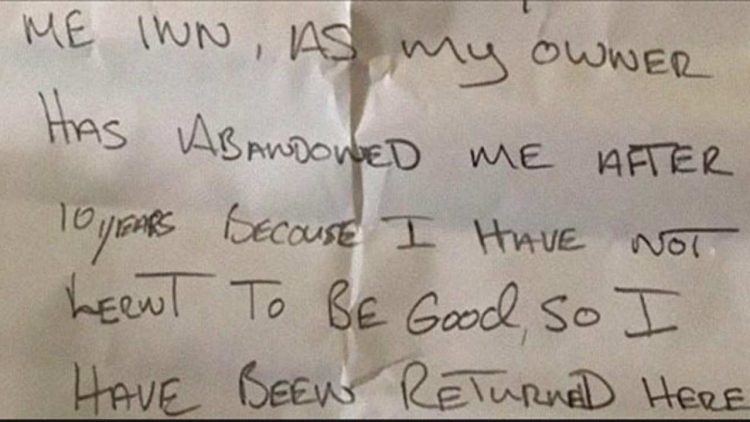 ME INN, AS My OWNER
HAS ABANDONED ME AFTER
10 YEARS BECOUSE I HAVE NOT
LERNT TO BE GOOD, SO I
HAVE BEEN RETURNED HERE